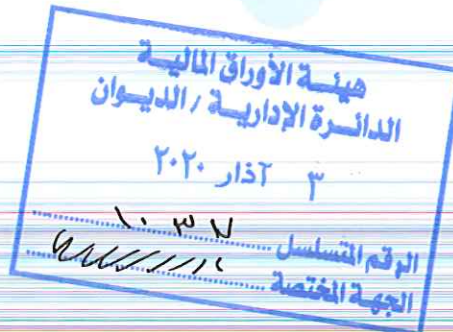 هيئة الأوراق المالية
الدائرة الإدارية / الديوان
٣ آذار ٢٠٢٠
الرقم المتسلسل
الجهة المختصة